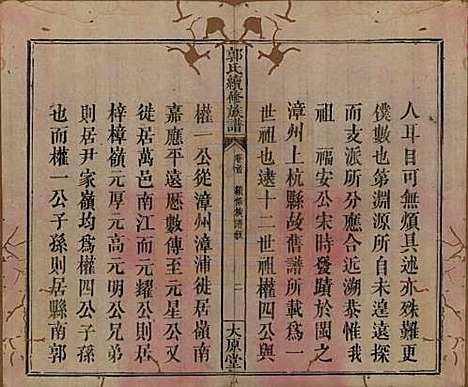 人耳目可無煩具述亦殊難更
僕數也第淵源所自未遑遠探
而支派所分應合近溯恭惟我
祖 福安公宋時發蹟於閩之
漳州上杭縣故舊譜所載為一
世祖也逮十二世祖權四公與
郭氏續修族譜
卷首
二
太原堂
權一公從漳州漳浦徙居嶺南
嘉應平遠歷數傳至元星公又
徙居萬邑南江而元耀公則居
梓樟嶺元厚元高元明公兄弟
則居尹家嶺均為權四公子孫
也而權一公子孫則居縣南郭